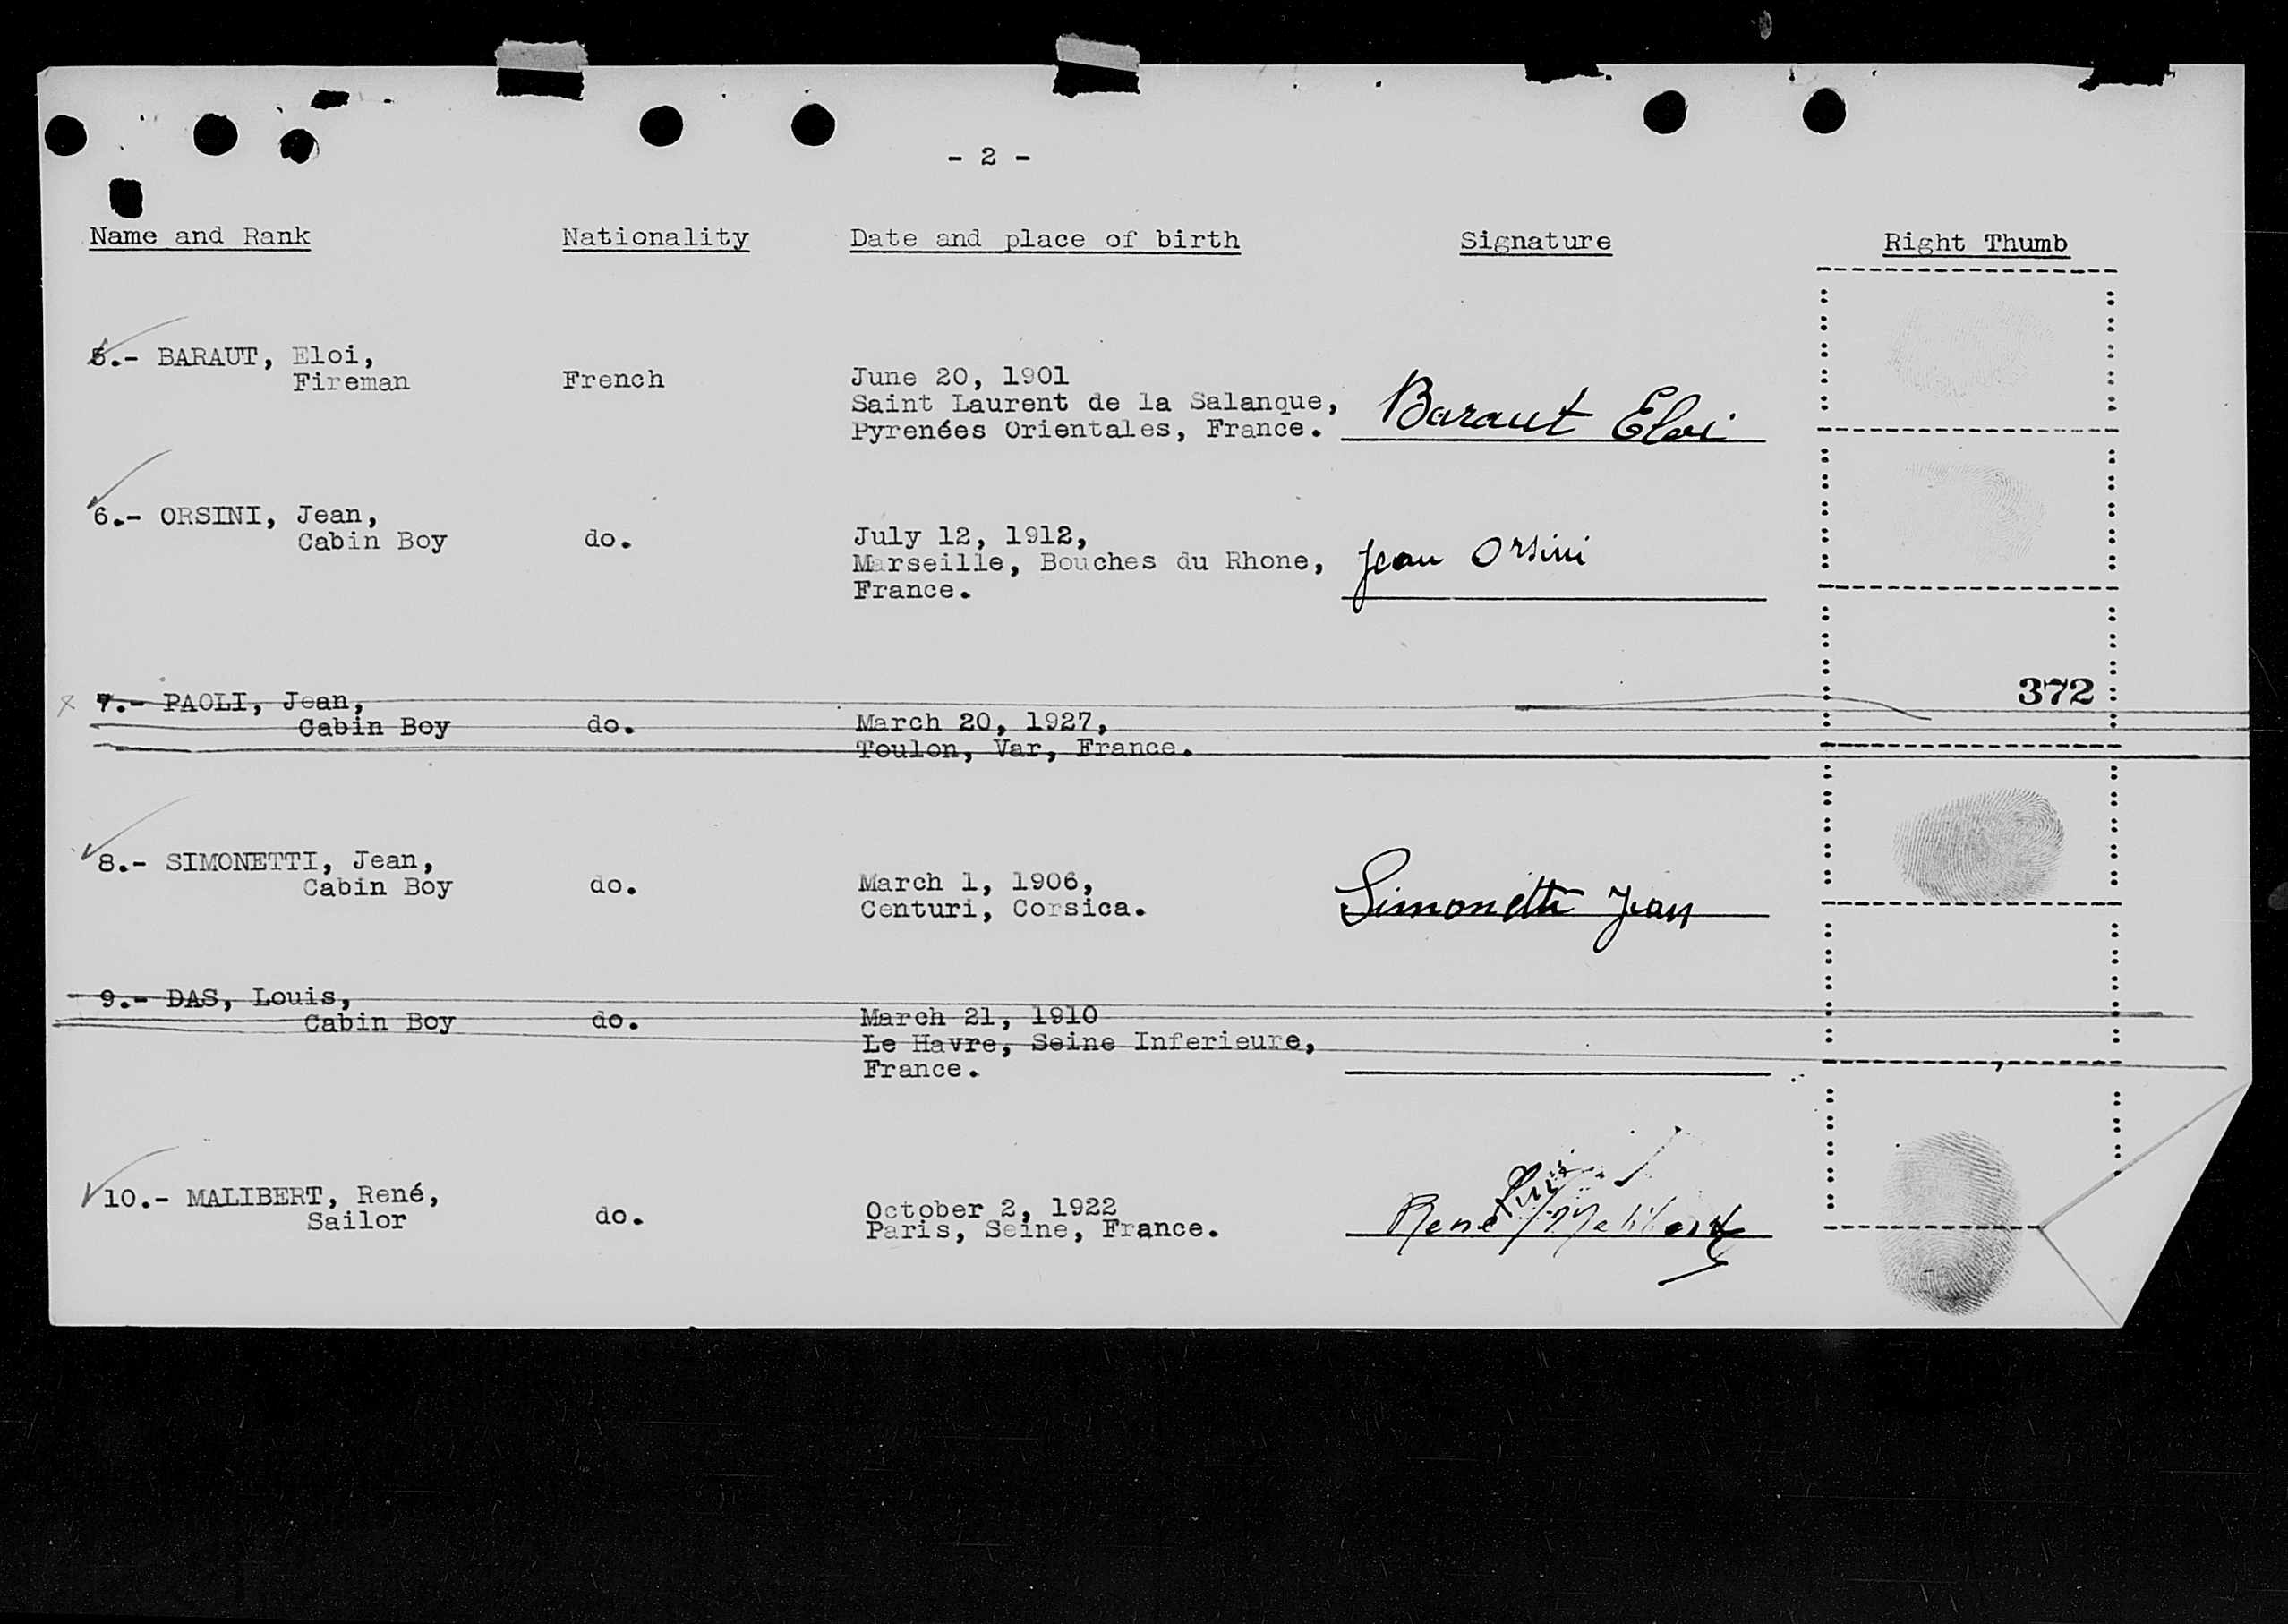 - 2 -
Name and Rank Nationality Date and place of birth Signature Right Thumb
5.- BARAUT, Eloi,
Fireman French June 20, 1901
Saint Laurent de la Salanque,
Pyrenées Orientales, France. Baraut Eloi
6.- ORSINI, Jean,
Cabin Boy do. July 12, 1912,
Marseille, Bouches du Rhone, Jean Orsini
France.
372
7.- PAOLI, Jean,
Cabin Boy do. March 20, 1927,
Toulon, Var, France.
8.- SIMONETTI, Jean,
Cabin Boy do. March 1, 1906,
Centuri, Corsica. Simonetti Jean
9.- DAS, Louis,
Cabin Boy do. March 21, 1910
Le Havre, Seine Inferieure,
France.
10.- MALIBERT, René,
Sailor do. October 2, 1922
Paris, Seine, France. René Malibert